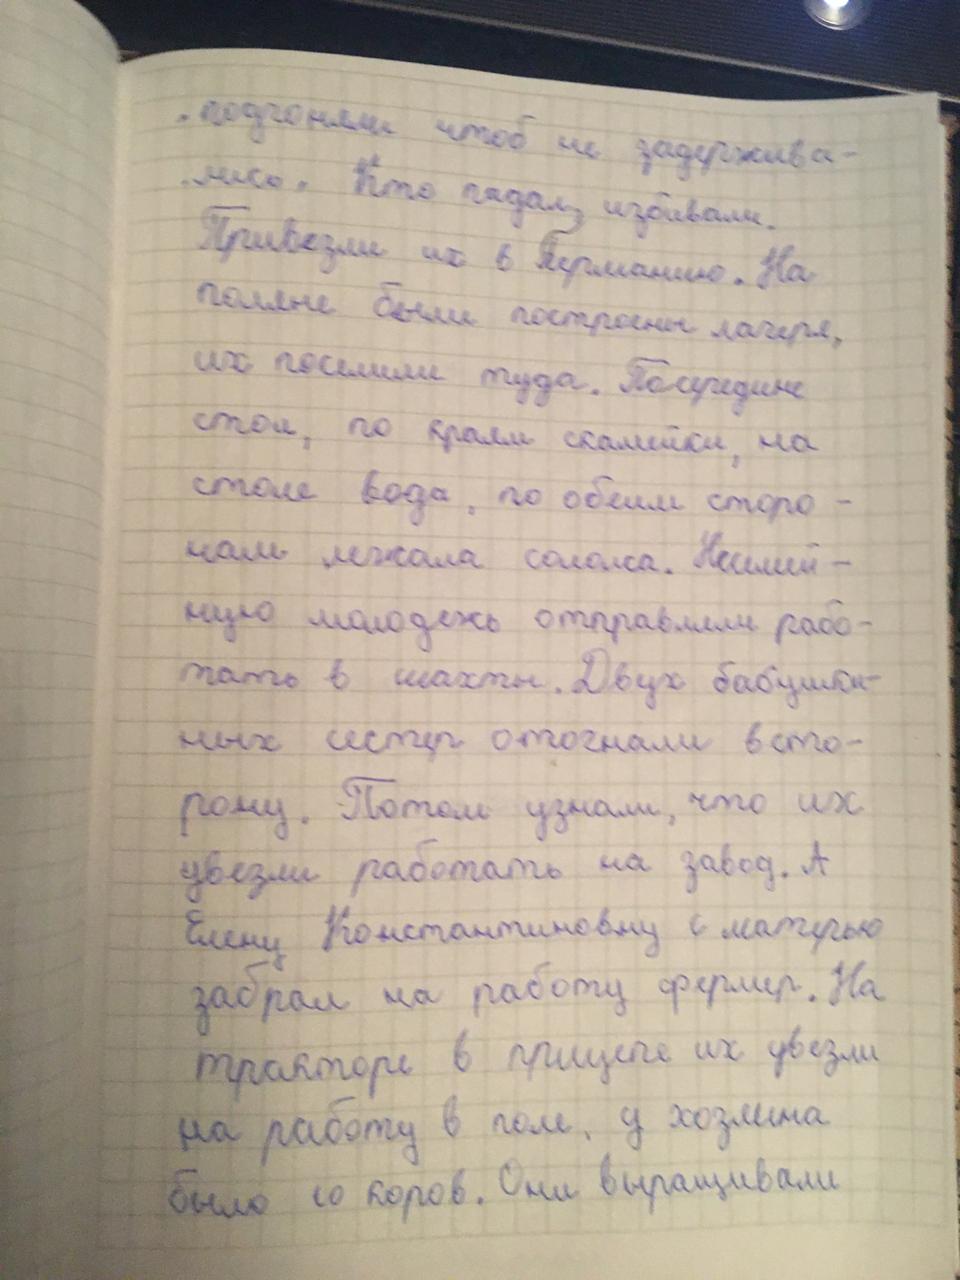 подгоняли чтоб не задержива-
лись. Кто падал, избивали.
Привезли их в Германию. На
поляне были построены лагеря,
их поселили туда. Посередине
стол, по краям скамейки, на
столе вода, по обеим сторо-
нам лежала солома.
молодежь отправляли рабо-
тать в шахты. Двух бабушки-
ных сестер отогнали в сто-
рону. Потом узнали, что их
увезли работать на завод. А
Елену Константиновну с матерью
забрал на работу фермер. На
тракторе в прицепе их увезли
на работу в поле, у хозяина
было 10 коров. Они выращивали